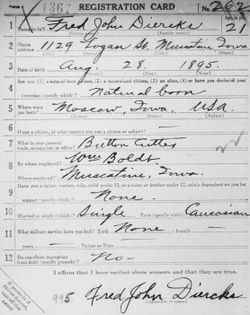 REGISTRATION CARD No. 262
1 Name in full Fred John Diercks 21
(Given name) (Family name) Age, in yrs.
2 Home address 1129 Logan St. Muscatine Iowa
3 Date of birth Aug 28 1895
(Month) (Day) (Year)
4 Are you (1) a natural-born citizen, (2) a naturalized citizen, (3) an alien, (4) or have you declared your intention (specify which)?
Natural born
5 Where were you born? Moscow, Iowa, USA
6 If not a citizen, of what country are you a citizen or subject?
7 What is your present trade, occupation, or office? Button Cutter
8 By whom employed? Wm Boldt
Where employed? Muscatine, Iowa.
9 Have you a father, mother, wife, child under 12, or a sister or brother under 12, solely dependent on you for support (specify which)?
None.
10 Married or single (which)? Single Race (specify which)? Caucasian
11 What military service have you had? Rank None branch
years Nation or State
12 Do you claim exemption from draft (specify grounds)? No
I affirm that I have verified above answers and that they are true.
Fred John Diercks